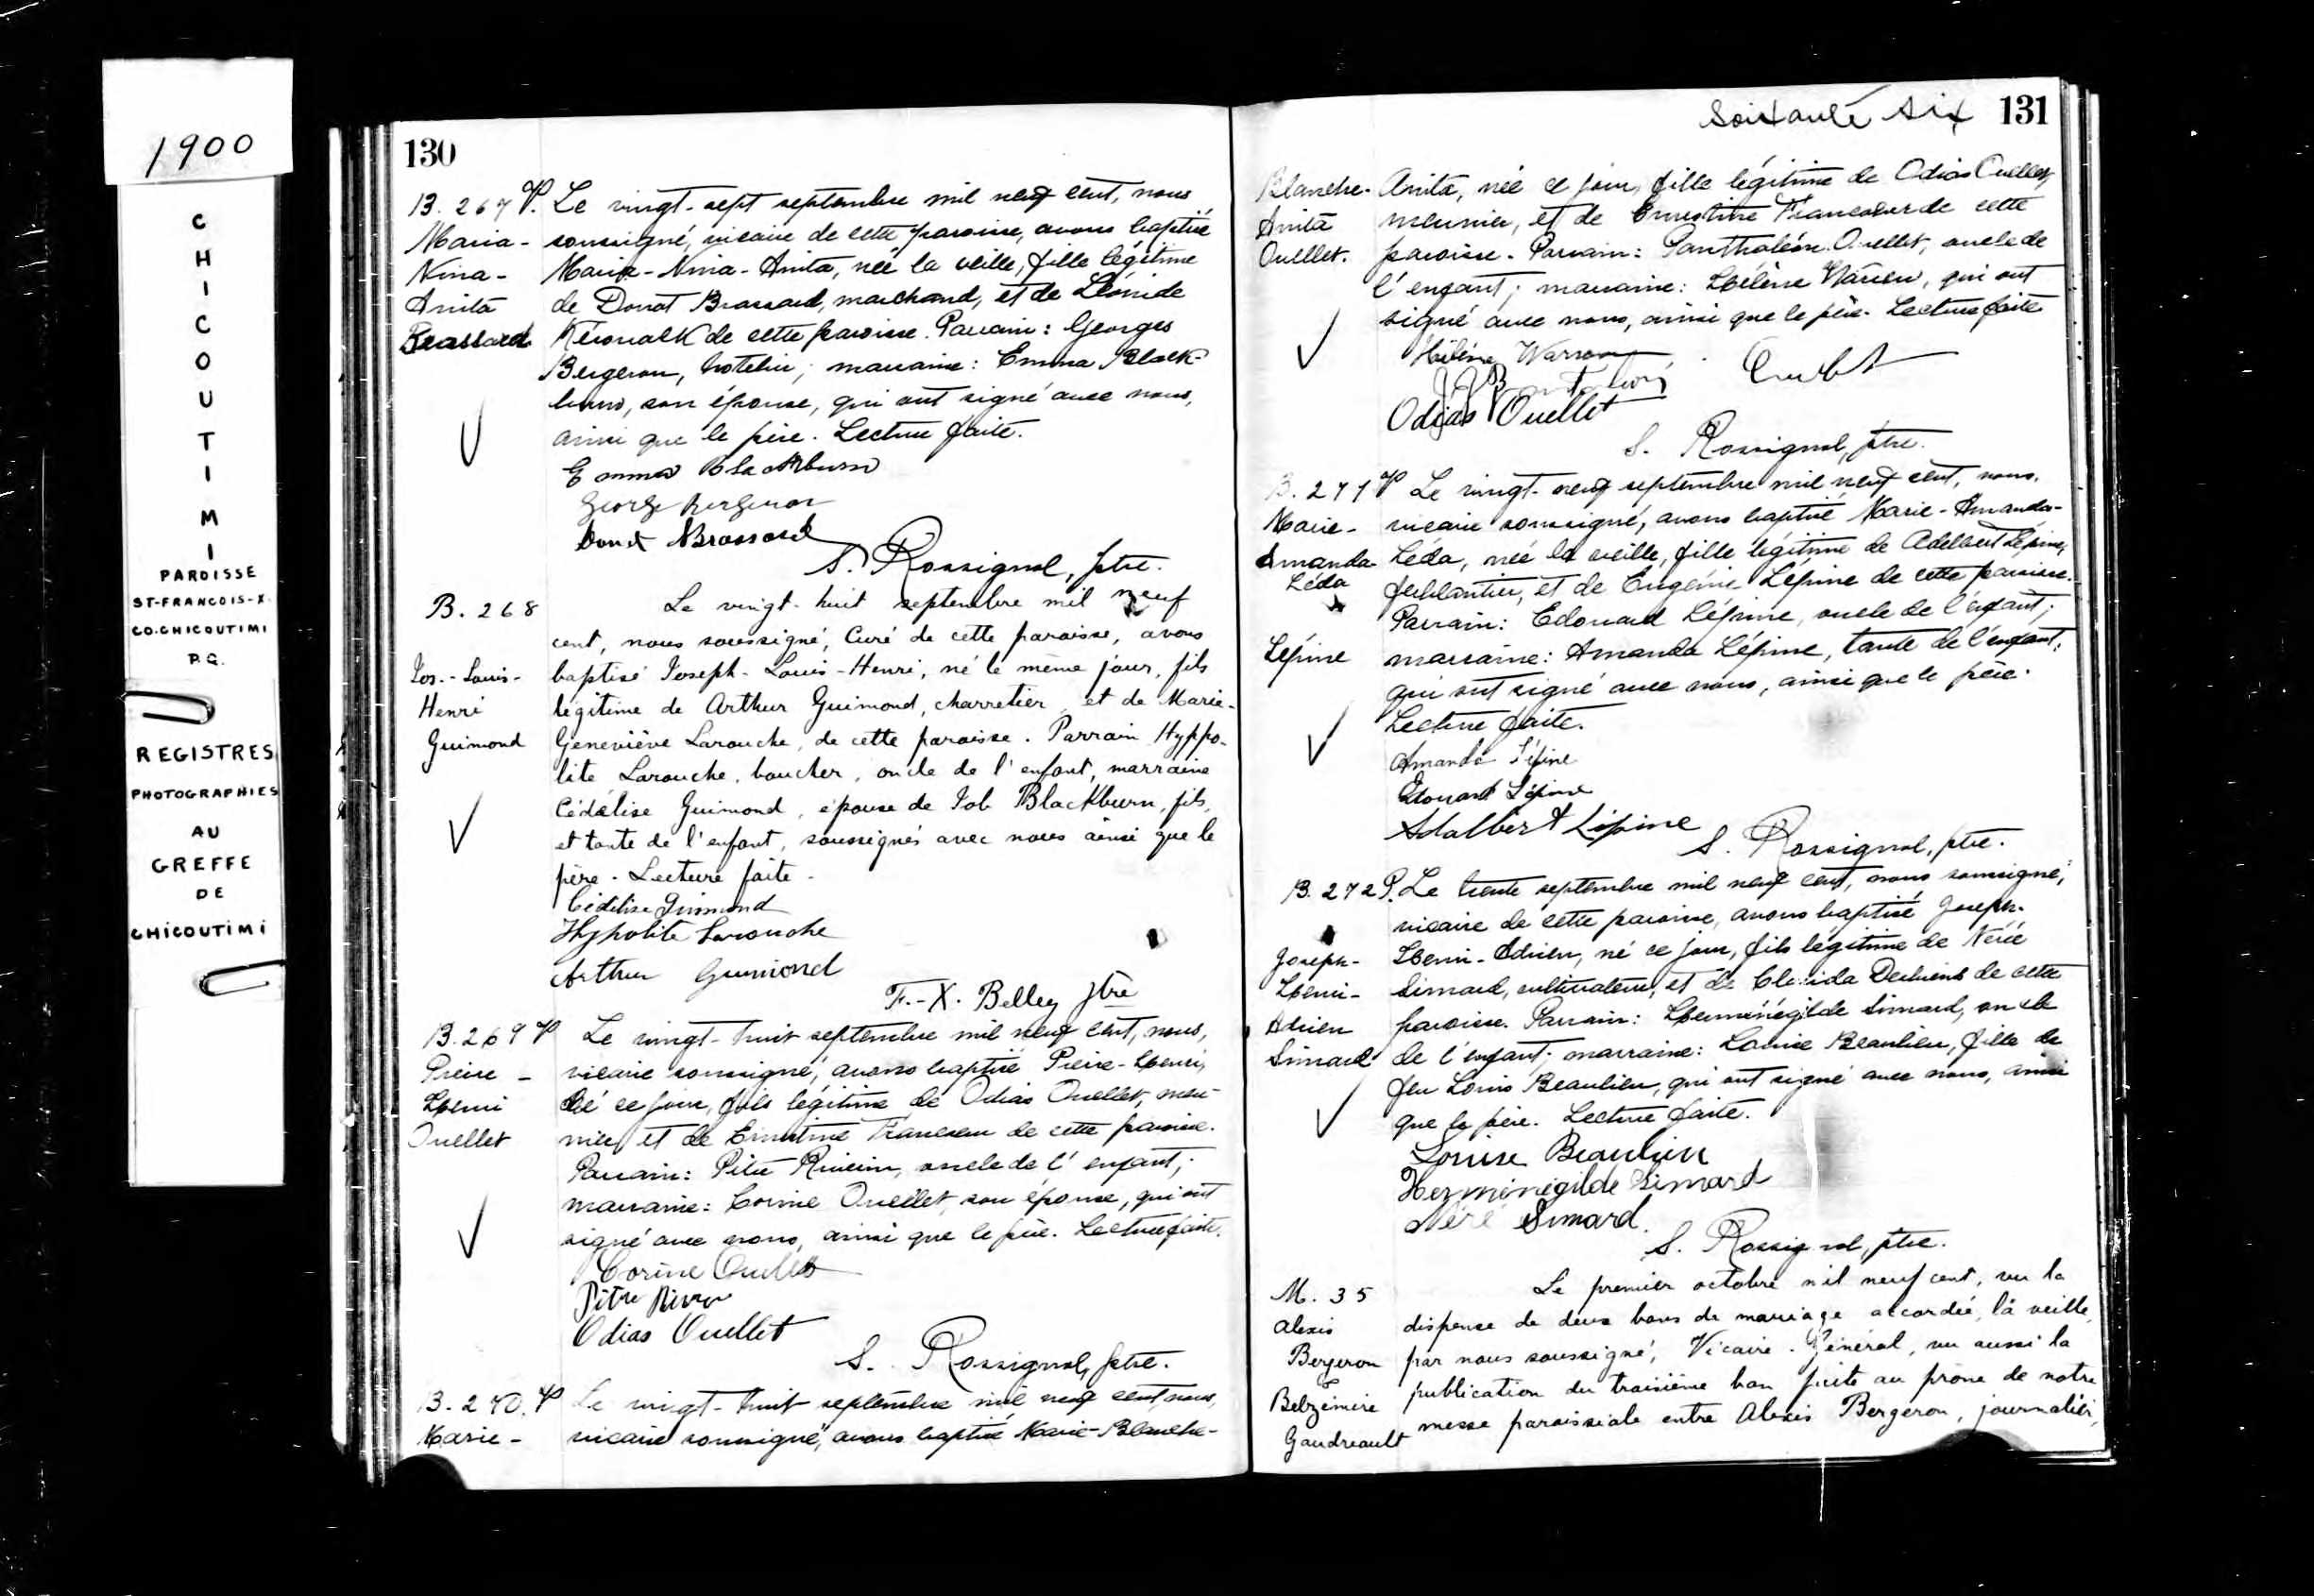 1900
CHICOUTIMI
PAROISSE
ST-FRANCOIS-X.
CO.CHICOUTIMI
P.Q.
REGISTRES
PHOTOGRAPHIES
AU
GREFFE
DE
CHICOUTIMI
130
B. 267 P. Le vingt-sept septembre mil neuf cent, nous
Maria- soussigné, vicaire de cette paroisse, avons baptisé
Nina- Maria-Nina-Anita, née la veille, fille légitime
Anita de Donat Brassard, marchand, et de Léonide
Brassard Kérouack de cette paroisse. Parrain: Georges
Bergeron, hotelier; marraine: Emma Black-
burn, son épouse, qui ont signé avec nous,
ainsi que le père. Lecture faite.
Emma Blackburn
George Bergeron
Donat Brassard
S. Rossignol, ptre.
B. 268 Le vingt-huit septembre mil neuf
cent, nous soussigné, Curé de cette paroisse, avons
Jos.-Louis- baptisé Joseph-Louis-Henri, né le même jour, fils
Henri légitime de Arthur Guimond, charretier, et de Marie-
Guimond Geneviève Larouche, de cette paroisse. Parrain Hyppo-
lite Larouche, boucher, oncle de l'enfant, marraine
Cédélise Guimond, épouse de Job Blackburn, fils,
et tante de l'enfant, soussignés avec nous ainsi que le
père. Lecture faite.
Cédélise Guimond
Hypolite Larouche
Arthur Guimond
F.-X. Belley ptre
B. 269 P Le vingt-huit septembre mil neuf cent, nous,
Pierre- vicaire soussigné, avons baptisé Pierre-Henri,
Henri né ce jour, fils légitime de Odias Ouellet, meu-
Ouellet nier, et de Ernestine Francoeur de cette paroisse.
Parrain: Pitre Riverin, oncle de l'enfant;
marraine: Corine Ouellet, son épouse, qui ont
signé avec nous, ainsi que le père. Lecture faite.
Corine Ouellet
Pitre
Odias Ouellet
S. Rossignol, ptre.
B. 270. P Le vingt-huit septembre mil neuf cent nous,
Marie- vicaire soussigné, avons baptisé Marie-Blanche-
Soixante six 131
Blanche- Anita, née ce jour, fille légitime de Odias Ouellet,
Anita meunier, et de Ernestine Francoeur de cette
Ouellet. paroisse. Parrain: Panthaléon Ouellet, oncle de
l'enfant; marraine: Hélène Warren, qui ont
signé avec nous, ainsi que le père. Lecture faite
Hélène Warren
Odias Ouellet
S. Rossignol, ptre.
B. 271 P Le vingt-neuf septembre mil neuf cent, nous,
Marie- vicaire soussigné, avons baptisé Marie-Amanda-
Amanda- Léda, née la veille, fille légitime de Adelbert Lépine,
Léda ferblantier, et de Eugénie Lépine de cette paroisse.
Parrain: Edouard Lépine, oncle de l'enfant;
Lépine marraine: Amanda Lépine, tante de l'enfant,
qui ont signé avec nous, ainsi que le père.
Lecture faite.
Amanda Lépine
Edouard Lépine
Adalbert Lépine
S. Rossignol, ptre.
B. 272 P. Le trente septembre mil neuf cent, nous soussigné,
vicaire de cette paroisse, avons baptisé Joseph-
Joseph- Henri-Adrien, né ce jour, fils légitime de Nérée
Henri- Simard, cultivateur, et de Clorida Deschênes de cette
Adrien paroisse. Parrain: Herménégilde Simard, oncle
Simard de l'enfant; marraine: Louise Beaulieu, fille de
feu Louis Beaulieu, qui ont signé avec nous, ainsi
que le père. Lecture faite.
Louise Beaulieu
Herménégilde Simard
Néré Simard.
S. Rossignol, ptre.
M. 35 Le premier octobre mil neuf cent, vu la
Alexis dispense de deux bans de mariage accordée, la veille,
Bergeron par nous soussigné, Vicaire-Général, vu aussi la
& publication du troisième ban faite au prône de notre
Belzémire messe paroissiale entre Alexis Bergeron, journalier,
Gaudreault